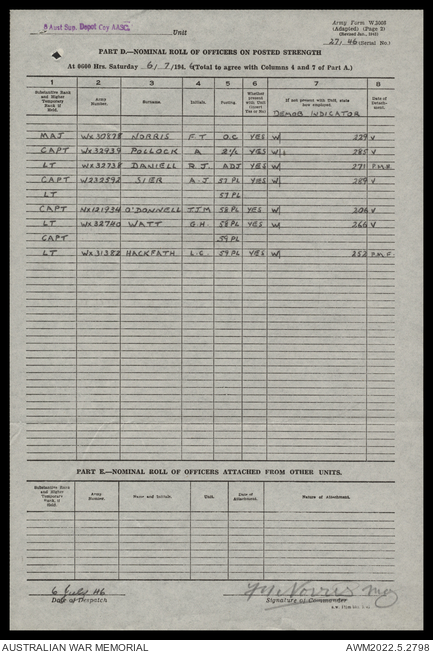 5 Aust Sup. Depot Coy AASC. Unit
Army Form W.3008
(Adapted) (Page 2)
(Revised Jan., 1945)
27/46 (Serial No.)
PART D.—NOMINAL ROLL OF OFFICERS ON POSTED STRENGTH
At 0600 Hrs. Saturday 6/7/1946 (Total to agree with Columns 4 and 7 of Part A.)
1 2 3 4 5 6 7 8
Substantive Rank and Higher Temporary Rank if Held. Army Number. Surname. Initials. Posting. Whether present with Unit (insert Yes or No) If not present with Unit, state how employed Date of Detachment.
DEMOB INDICATOR
MAJ WX30878 NORRIS F.T. O.C YES W/ 229 V
CAPT WX32939 POLLOCK A 2i/c YES W/+ 285 V
LT WX32738 DANIELL R.J. ADJ YES W/ 271 P.M.F.
CAPT W232592 SIER A.J 57 PL YES W/ 289 V
LT 57 PL
CAPT NX121934 O'DONNELL T.J.M 58 PL YES W/ 206 V
LT WX32740 WATT G.H. 58 PL YES W 266 V
CAPT 59 PL
LT WX31382 HACKPATH L.C. 59 PL YES W/ 252 P.M.F.
PART E.—NOMINAL ROLL OF OFFICERS ATTACHED FROM OTHER UNITS.
Substantive Rank and Higher Temporary Rank, if Held Army Number. Name and Initials. Unit. Date of Attachment. Nature of Attachment.
6 July 46
Date of Despatch
Norris Maj
Signature of Commander
AUSTRALIAN WAR MEMORIAL AWM2022.5.2798